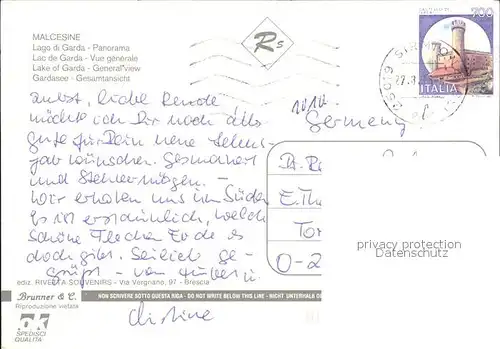 MALCESINE
Lago di Garda - Panorama
Lac de Garda - Vue générale
Lake of Garda - General view
Gardasee - Gesamtansicht
Rs
700
ITALIA
27.8.
Germany
liebe Renate
möchte ich Dir noch alles
Gute für Dein neue Lebens-
jahr wünschen. Gesundheit
und Stehvermögen. -
Wir erholen uns im Süden
Es ist erstaunlich, welch
schöne Flecken Erde es
doch gibt. Sei lieb ge-
grüßt - von
E.Th
Tor
O-2
privacy protection
Datenschutz
ediz. RIVELTA SOUVENIRS - Via Vergnano, 97 - Brescia
Brunner & C.
NON SCRIVERE SOTTO QUESTA RIGA - DO NOT WRITE BELOW THIS LINE - NICHT UNTERHALB D
Riproduzione vietata
SPEDISCI
QUALITÀ